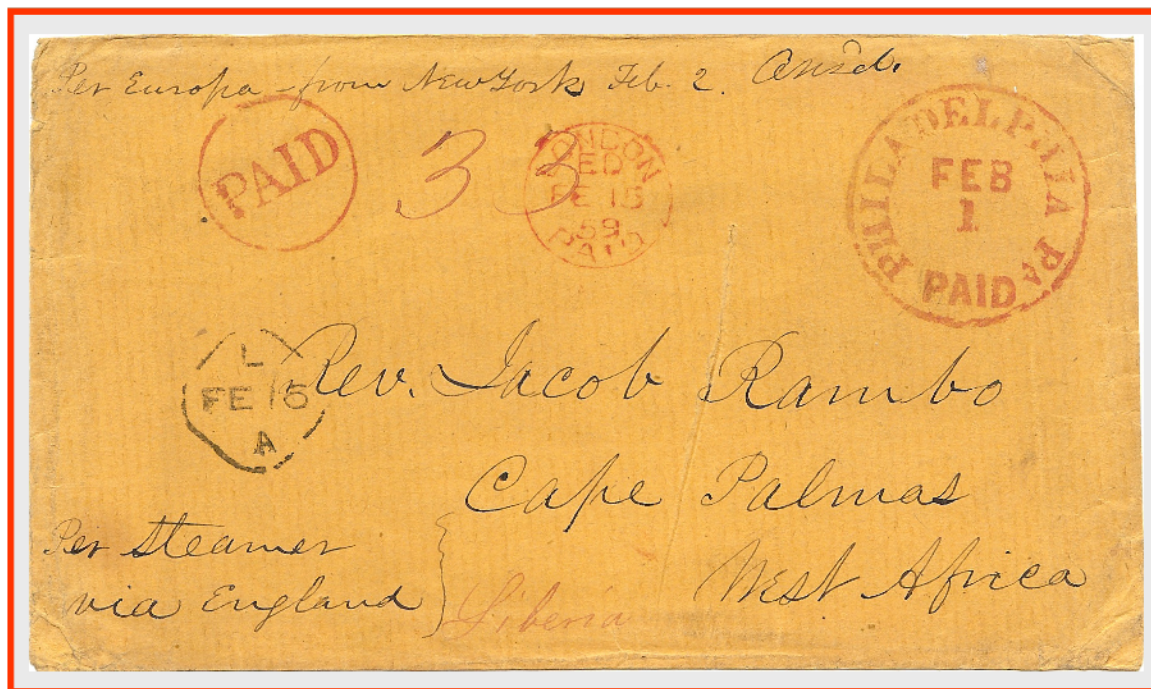 Per Europa from New York Feb. 2. Ansd.
PAID
33
LONDON
ED
FE 15
59
PAID
PHILADELPHIA PA
FEB
1
PAID
L
FE 15
A
Rev. Jacob Rambo
Cape Palmas
West Africa
Per Steamer
via England
Liberia